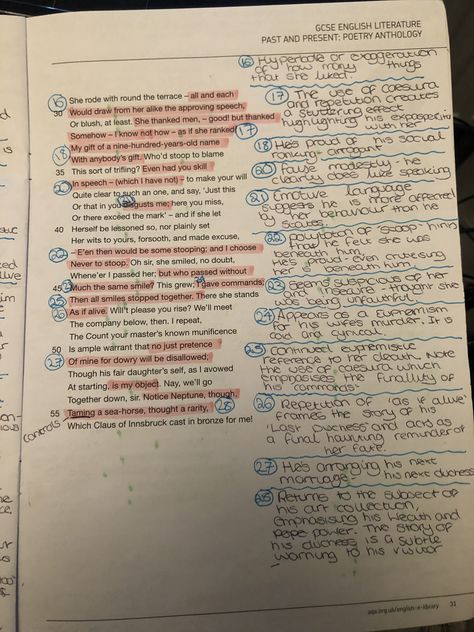 GCSE ENGLISH LITERATURE
PAST AND PRESENT: POETRY ANTHOLOGY
16 She rode with round the terrace – all and each
30 Would draw from her alike the approving speech,
Or blush, at least. She thanked men, – good! but thanked
Somehow – I know not how – as if she ranked 17
18 My gift of a nine-hundred-years-old name
With anybody's gift. Who'd stoop to blame
35 This sort of trifling? Even had you skill
20 In speech – (which I have not) – to make your will
Quite clear to such an one, and say, 'Just this
Or that in you disgusts me; here you miss,
Or there exceed the mark' – and if she let
40 Herself be lessoned so, nor plainly set
Her wits to yours, forsooth, and made excuse,
22 – E'en then would be some stooping; and I choose
Never to stoop. Oh sir, she smiled, no doubt,
Whene'er I passed her; but who passed without
45 23 Much the same smile? This grew; I gave commands;
25 Then all smiles stopped together. There she stands
26 As if alive. Will't please you rise? We'll meet
The company below, then. I repeat,
The Count your master's known munificence
50 Is ample warrant that no just pretence
27 Of mine for dowry will be disallowed;
Though his fair daughter's self, as I avowed
At starting, is my object. Nay, we'll go
Together down, sir. Notice Neptune, though,
55 Taming a sea-horse, thought a rarity, 28
Which Claus of Innsbruck cast in bronze for me!
controls
16 Hyperbole or exaggeration
of how many things
that she liked.
17 The use of caesura
and repetition creates
a stuttering effect
highlighting his
with her
18 He's proud of his social
ranking - arrogant
20 False modesty - he
clearly does like speaking
21 Emotive language
suggests he is more affected
by her behaviour than he
states
22 repetition of 'stoop' hints
how he felt she was
beneath him.
He's proud - even
her is beneath him
23 Sears suspicious of her
and insecure - thought she
was being unfaithful
24 Appears as a euphemism
for his wife's murder. It is
cold and cynical.
25 Continued euphemistic
reference to her death. Note
the use of caesura which
emphasises the finality of
his commands
26 Repetition of 'as if alive'
frames the story of his
'Last Duchess' and acts as
a final haunting reminder of
her fate.
27 He's arranging his next
marriage - his next duchess
28 Returns to the subject of
his art collection,
emphasising his wealth and
power. The story of
his duchess is a subtle
warning to his visitor
aqa.org.uk/english-e-library 31